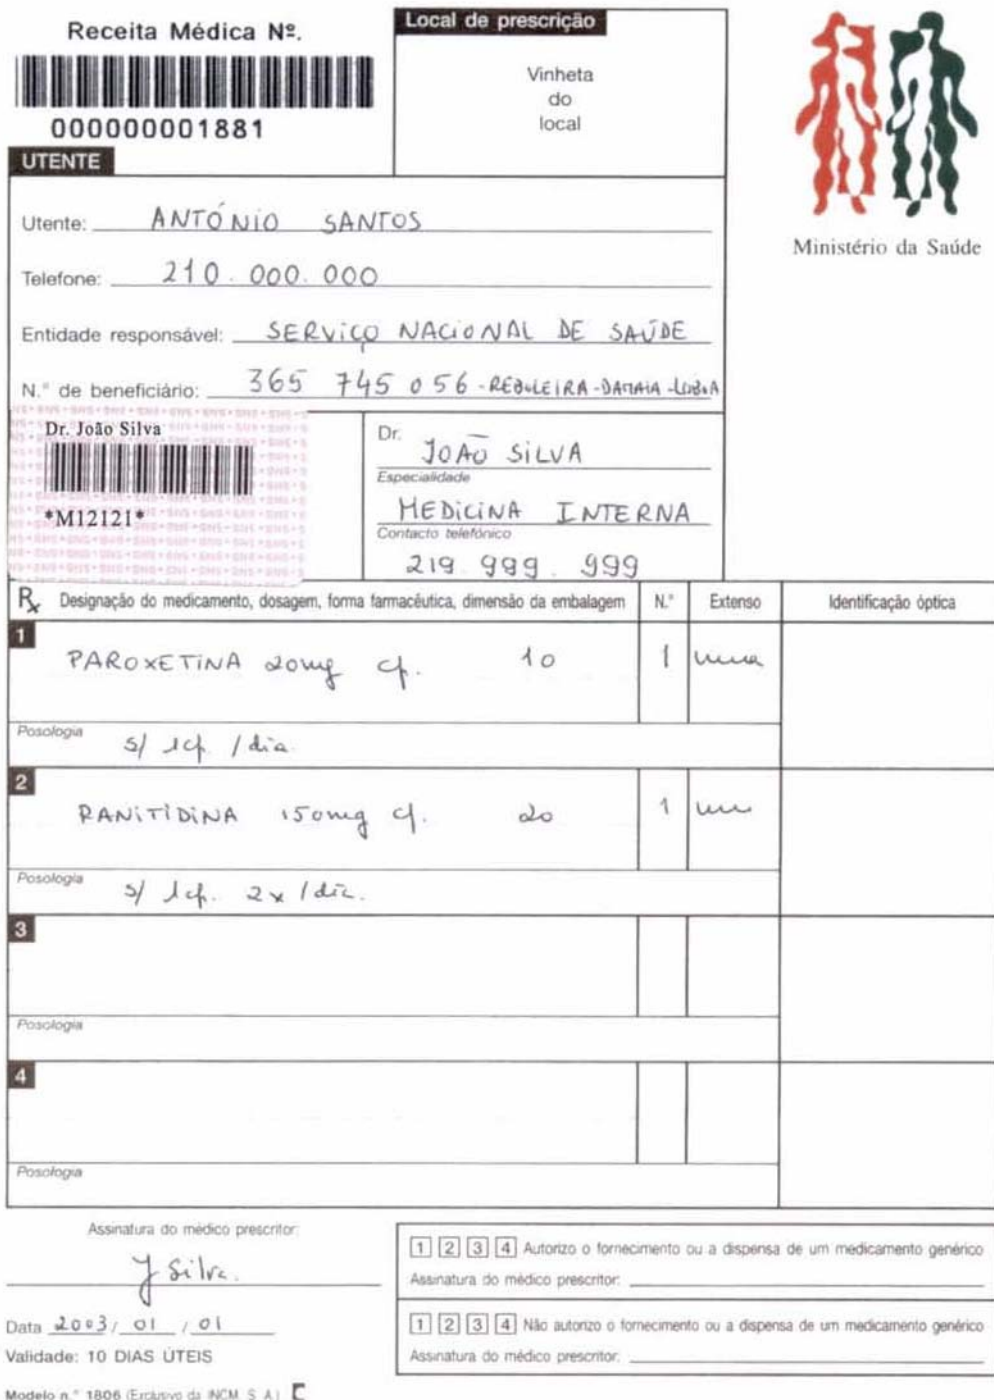 Receita Médica Nº.
000000001881
Local de prescrição
Vinheta
do
local
Ministério da Saúde
UTENTE
Utente: ANTÓNIO SANTOS
Telefone: 210.000.000
Entidade responsável: SERVIÇO NACIONAL DE SAÚDE
N.° de beneficiário: 365 745 056 - REBOLEIRA - DAMAIA - LISBOA
Dr. João Silva
*M12121*
Dr. JOÃO SILVA
Especialidade
MEDICINA INTERNA
Contacto telefónico
219.999.999
Rx Designação do medicamento, dosagem, forma farmacêutica, dimensão da embalagem N.° Extenso Identificação óptica
1
PAROXETINA 20mg cp. 10 1 uma
Posologia s/ 1cp. / dia.
2
RANITIDINA 150mg cp. 20 1 um
Posologia s/ 1cp. 2x / dia.
3
Posologia
4
Posologia
Assinatura do médico prescritor:
J Silva.
Data 2003 / 01 / 01
Validade: 10 DIAS ÚTEIS
Modelo n.° 1806 (Exclusivo da INCM, S. A.)
1 2 3 4 Autorizo o fornecimento ou a dispensa de um medicamento genérico
Assinatura do médico prescritor:
1 2 3 4 Não autorizo o fornecimento ou a dispensa de um medicamento genérico
Assinatura do médico prescritor: